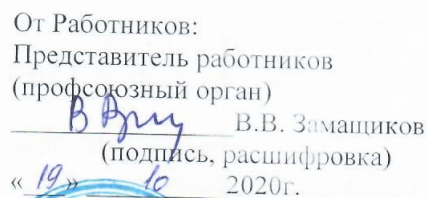 От Работников:
Представитель работников
(профсоюзный орган)
В.В. Замащиков
(подпись, расшифровка)
« 19 » 10 2020г.